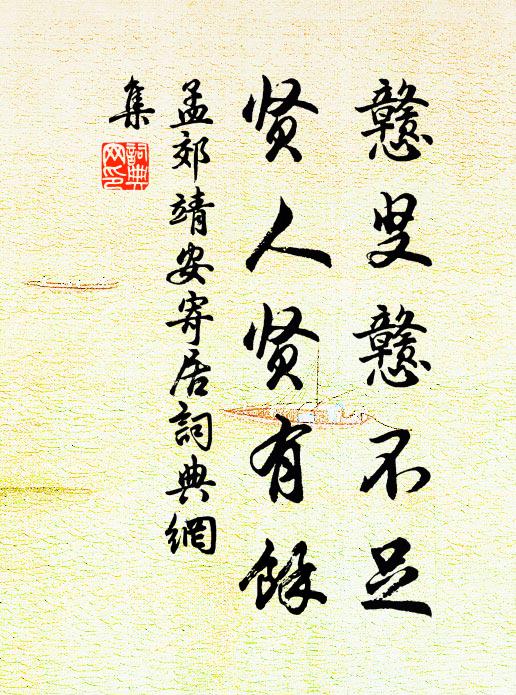 戆叟戆不足
贤人贤有馀
孟郊靖安寄居詞典網
集
詞典
网印